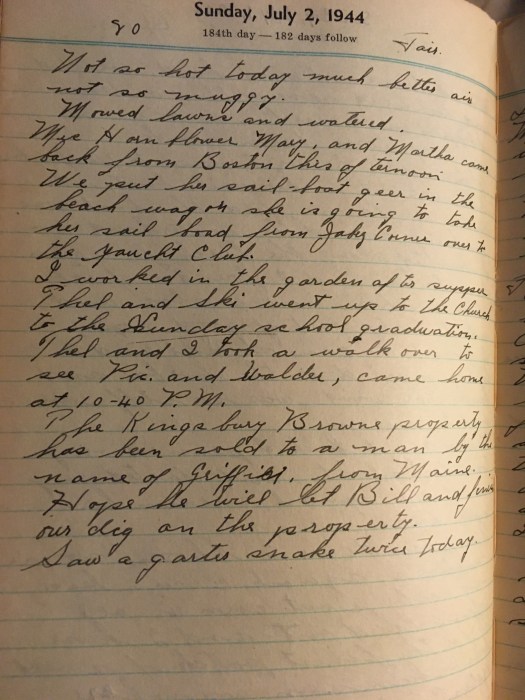 Sunday, July 2, 1944
184th day — 182 days follow
80
Fair.
Not so hot today much better air
not so muggy.
Mowed lawns and watered.
Mrs Hornblower Mary, and Martha came
back from Boston this afternoon
We put her sail-boat geer in the
beach wagon she is going to take
her sail boad from Jakes Corner over to
the Yaucht Club.
I worked in the garden after supper
Thel and Ski went up to the Church
to the Sunday school graduation.
Thel and I took a walk over to
see Pix. and Walder, came home
at 10-40 P.M.
The Kingsbury Browne property
has been sold to a man by the
name of from Maine.
Hope he will let Bill and
our dig on the property.
Saw a garter snake twice today.